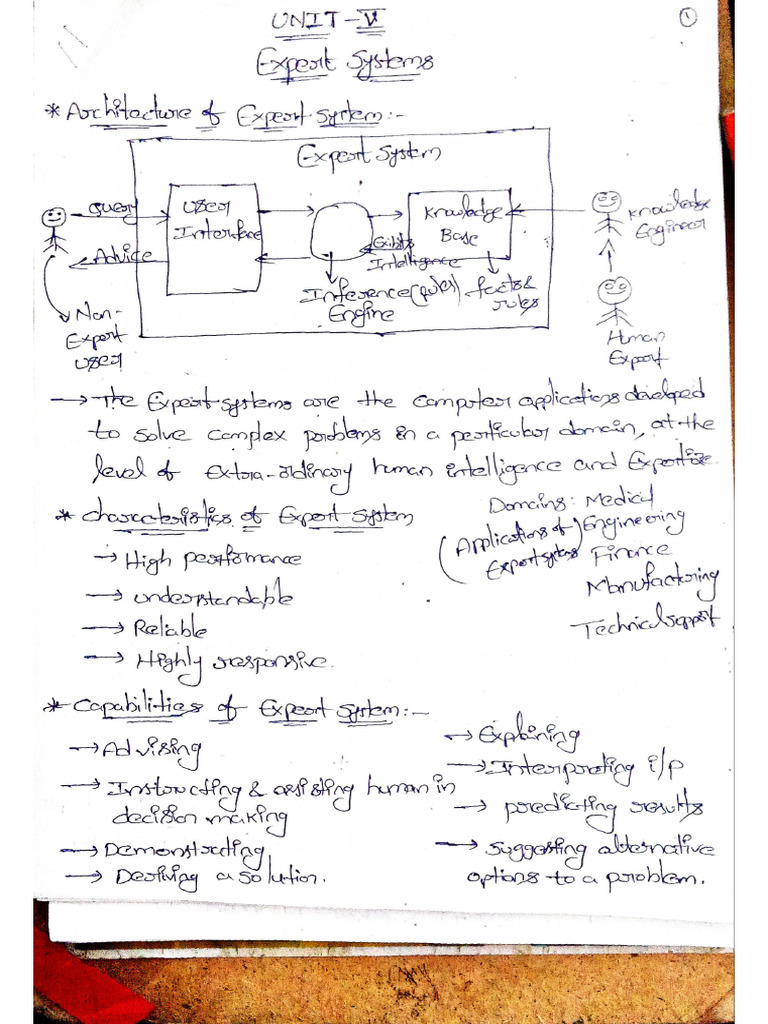 UNIT-V
1
Expert Systems
* Architecture of Expert System:-
Expert System
Query
User
Interface
Advice
Non-
Expert
user
Knowledge
Base
Exibits
Intelligence
Inference (rules)
Engine
facts &
rules
Knowledge
Engineer
Human
Expert
→ The Expert systems are the computer applications developed
to solve complex problems in a perticular domain, at the
level of extra-ordinary human intelligence and Expertize
* Characteristics of Expert System
→ High performance
→ understandable
→ Reliable
→ Highly responsive.
Domains: Medical
(Applications of
Expert systems)
Engineering
Finance
Manufactoring
Technical support
* Capabilities of Expert System:-
→ Advising
→ Instructing & assisting human in
decision making
→ Demonstrating
→ Deriving a solution.
→ Explaining
→ Interpreting i/p
→ predicting results
→ suggesting alternative
options to a problem.